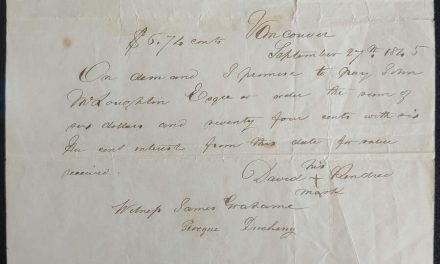 $6.74 cents Vancouver
September 27th 1845
On demand I promise to pay John
McLoughlin Esqre or order the sum of
six dollars and seventy four cents with six
per cent interest from this date for value
received
his
David + Kendree
mark
Witness James Grahame
Ducheny